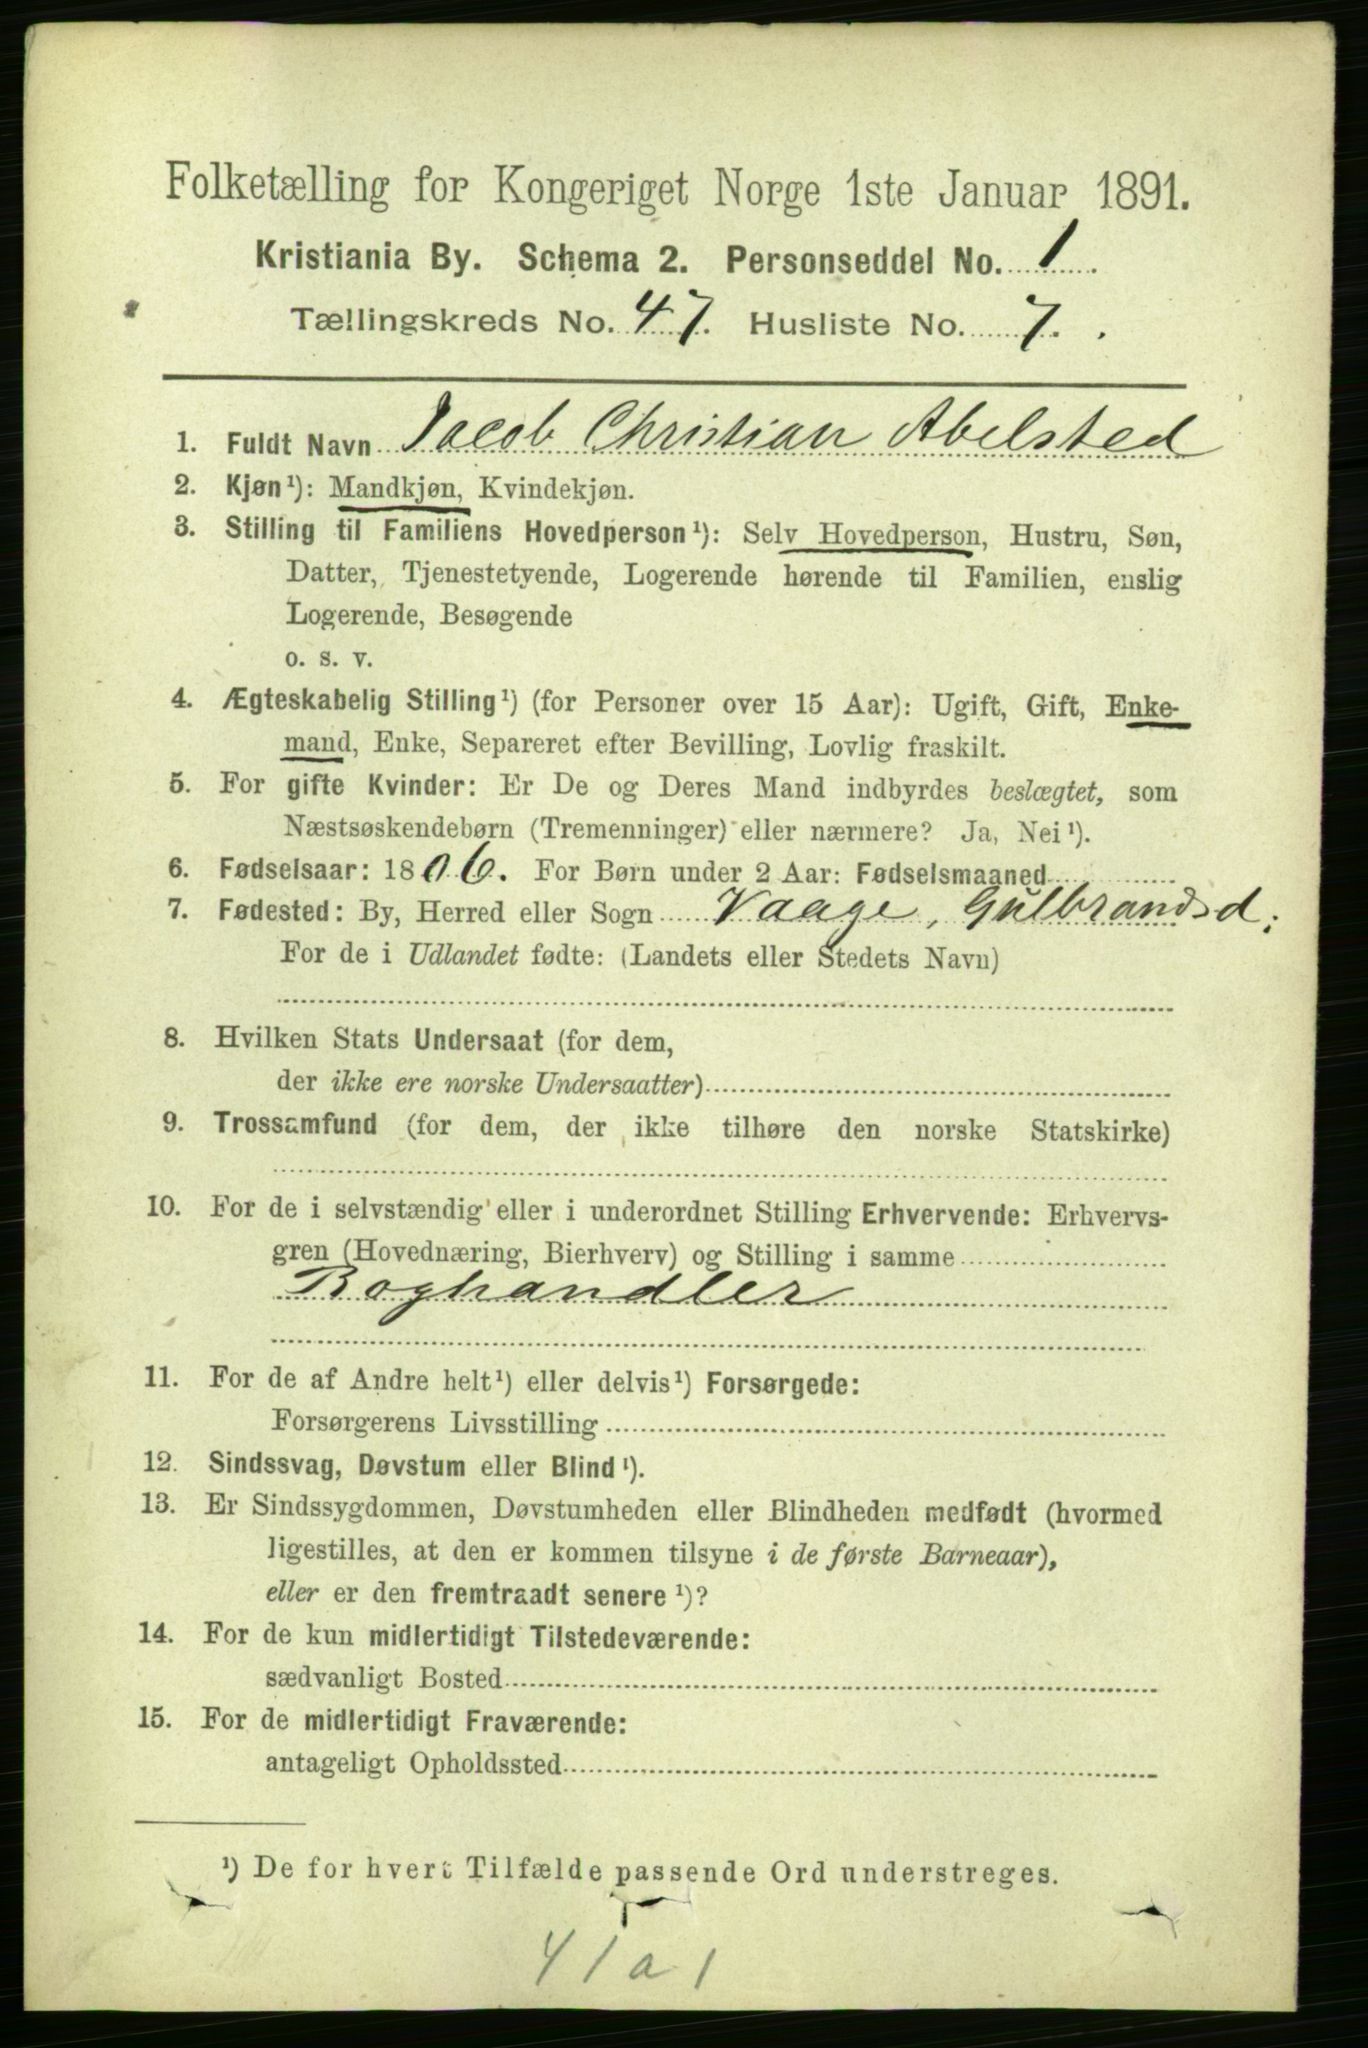 Folketælling for Kongeriget Norge 1ste Januar 1891.
Kristiania By. Schema 2. Personseddel No. 1.
Tællingskreds No. 47. Husliste No. 7.
1. Fuldt Navn Jacob Christian Abelsted
2. Kjøn¹): Mandkjøn, Kvindekjøn.
3. Stilling til Familiens Hovedperson¹): Selv Hovedperson, Hustru, Søn,
Datter, Tjenestetyende, Logerende hørende til Familien, enslig
Logerende, Besøgende
o. s. v.
4. Ægteskabelig Stilling¹) (for Personer over 15 Aar): Ugift, Gift, Enke-
mand, Enke, Separeret efter Bevilling, Lovlig fraskilt.
5. For gifte Kvinder: Er De og Deres Mand indbyrdes beslægtet, som
Næstsøskendebørn (Tremenninger) eller nærmere? Ja, Nei¹).
6. Fødselsaar: 1806. For Børn under 2 Aar: Fødselsmaaned
7. Fødested: By, Herred eller Sogn Vaage, Gulbrandsd:
For de i Udlandet fødte: (Landets eller Stedets Navn)
8. Hvilken Stats Undersaat (for dem,
der ikke ere norske Undersaatter)
9. Trossamfund (for dem, der ikke tilhøre den norske Statskirke)
10. For de i selvstændig eller i underordnet Stilling Erhvervende: Erhvervs-
gren (Hovednæring, Bierhverv) og Stilling i samme
Boghandler
11. For de af Andre helt¹) eller delvis¹) Forsørgede:
Forsørgerens Livsstilling
12. Sindssvag, Døvstum eller Blind¹).
13. Er Sindssygdommen, Døvstumheden eller Blindheden medfødt (hvormed
ligestilles, at den er kommen tilsyne i de første Barneaar),
eller er den fremtraadt senere¹)?
14. For de kun midlertidigt Tilstedeværende:
sædvanligt Bosted
15. For de midlertidigt Fraværende:
antageligt Opholdssted
¹) De for hvert Tilfælde passende Ord understreges.
41a1